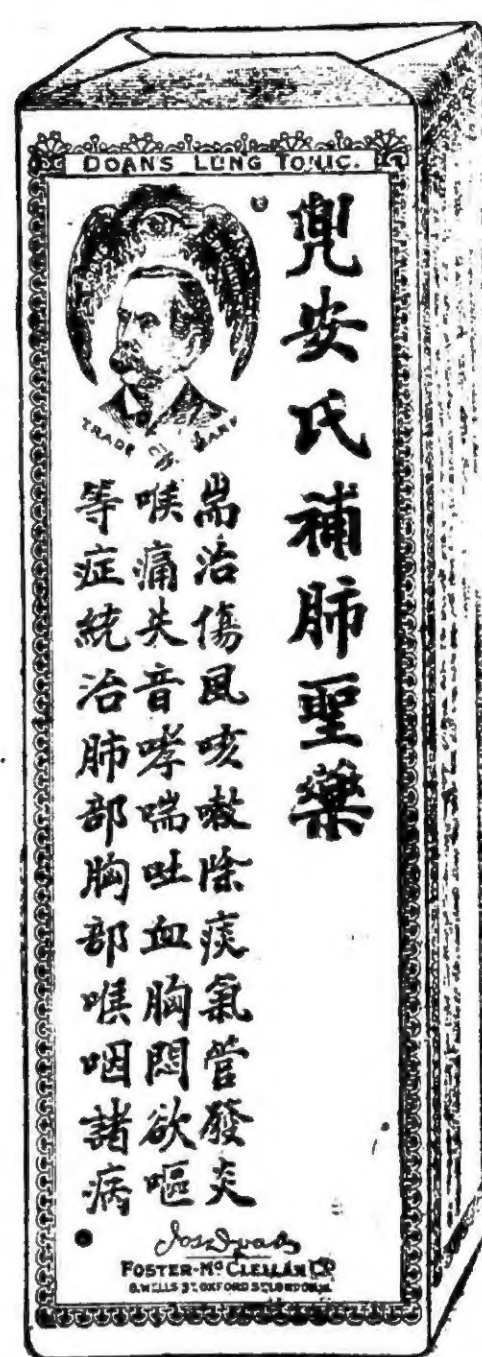 DOAN'S LUNG TONIC.
TRADE MARK
兜安氏補肺聖藥
耑治傷風咳嗽除痰氣管發炎
喉痛失音哮喘吐血胸悶欲嘔
等症統治肺部胸部喉咽諸病
FOSTER-McCLELLAN CO
8, WELLS ST OXFORD ST LONDON, W.